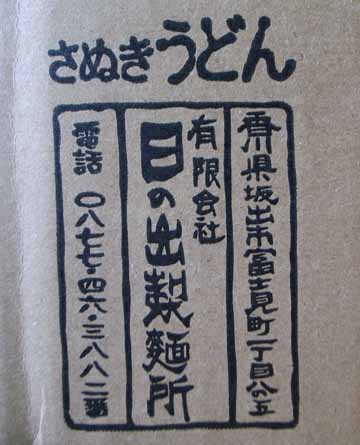 さぬきうどん
香川県坂出市富士見町一丁目八の五
有限会社
日の出製麺所
電話 〇八七七・四六・三八八二番